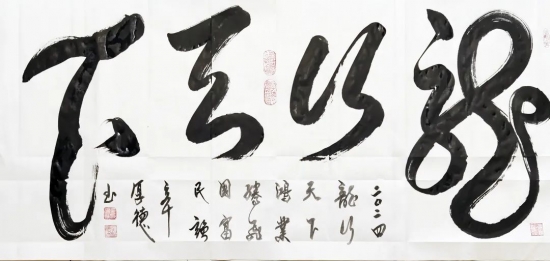 龍行天下
二〇二四
龍行
天下
鴻業
騰飛
国富
民强
厚德